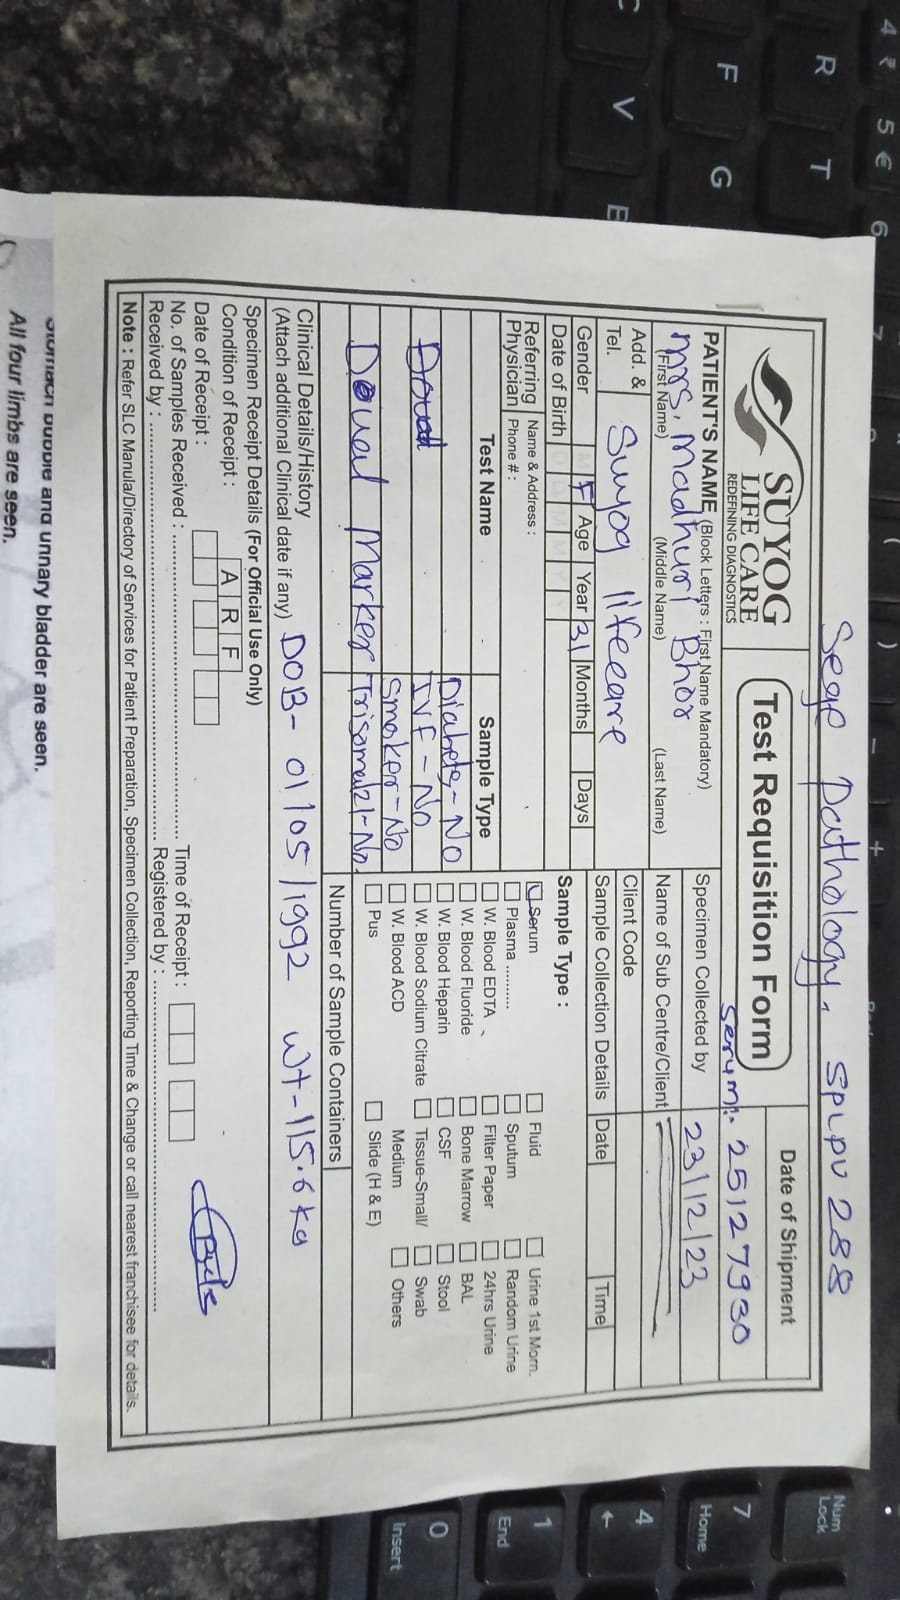 Sege Pathology, SPL PU 288
SUYOG
LIFE CARE
REDEFINING DIAGNOSTICS
Test Requisition Form
Date of Shipment
Serum:- 25127930
PATIENT'S NAME (Block Letters : First Name Mandatory)
Mrs. Madhuri Bhor
(First Name) (Middle Name) (Last Name)
Specimen Collected by 23/12/23
Name of Sub Centre/Client
Add. & Tel. Suyog lifecare
Client Code
Sample Collection Details Date Time
Gender M F Age Year 31 Months Days
Date of Birth D D M M Y Y
Sample Type :
Referring Physician
Name & Address :
Phone # :
Serum Fluid Urine 1st Morn.
Plasma .......... Sputum Random Urine
W. Blood EDTA Filter Paper 24hrs Urine
W. Blood Fluoride Bone Marrow BAL
W. Blood Heparin CSF Stool
W. Blood Sodium Citrate Tissue-Small/ Medium Swab
W. Blood ACD Others
Pus Slide (H & E)
Test Name Sample Type
Diabetes - No
IVF - No
Smoker - No
Douel Marker Trisomy21-No.
Number of Sample Containers
Clinical Details/History
(Attach additional Clinical date if any) DOB- 01/05/1992 wt-115.6 kg
Specimen Receipt Details (For Official Use Only)
Condition of Receipt : A R F
Date of Receipt : Time of Receipt :
No. of Samples Received :
Received by : Registered by :
Note : Refer SLC Manula/Directory of Services for Patient Preparation, Specimen Collection, Reporting Time & Change or call nearest franchisee for details.
Stomach bubble and urinary bladder are seen.
All four limbs are seen.
4 ₹ 5 € 6 7
R T
F G
C V B
( ) - +
Num Lock
7 Home
4 ←
1 End
0 Insert